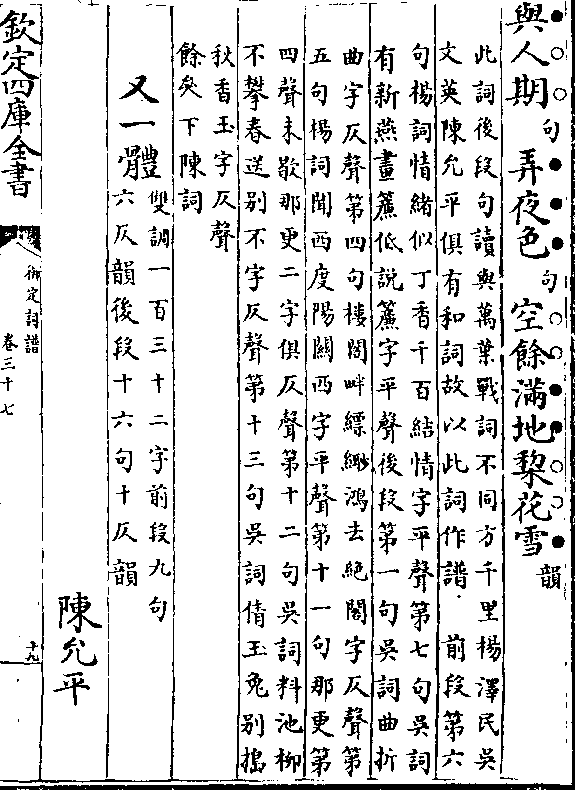 與人期句弄夜色句空餘滿地梨花雪韻
此詞後段句讀與萬葉戰詞不同方千里楊澤民吳
文英陳允平俱有和詞故以此詞作譜 前段第六
句楊詞情緒似丁香千百結情字平聲第七句吳詞
有新燕畫簾低說簾字平聲後段第一句吳詞曲折
曲字仄聲第四句樓閣畔縹緲鴻去絶閣字仄聲第
五句楊詞聞西度陽關西字平聲第十一句那更第
四聲未歇那更二字俱仄聲第十二句吳詞料池柳
不攀春送别不字仄聲第十三句吳詞倩玉兔别搗
秋香玉字仄聲
餘矣下陳詞
又一體雙調一百三十二字前段九句
六仄韻後段十六句十仄韻
陳允平
欽定四庫全書
御定詞譜
卷三十七
十九